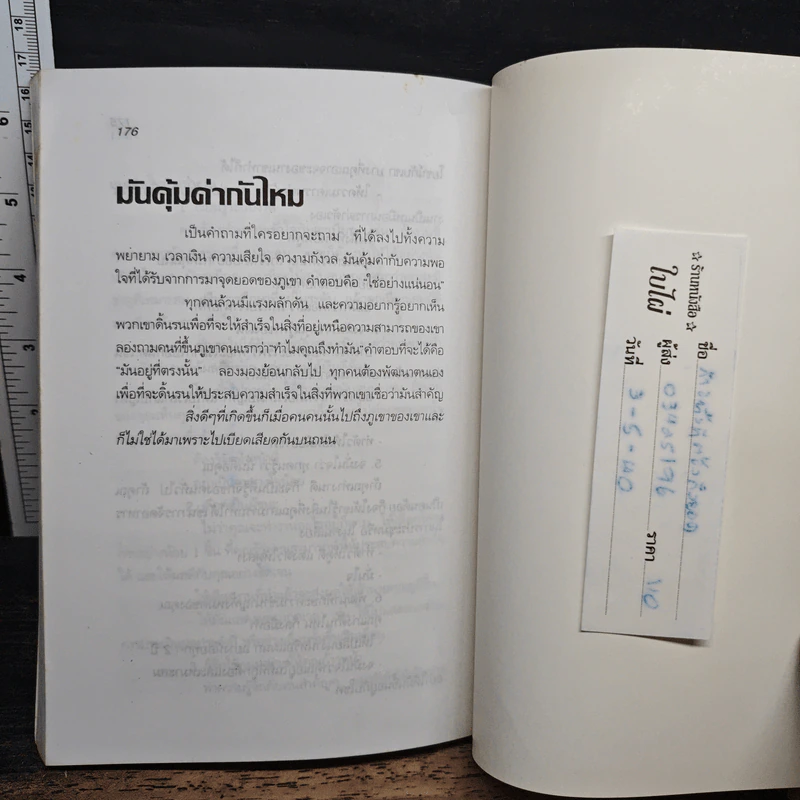 176
มันคุ้มค่ากันไหม
เป็นคำถามที่ใครอยากจะถาม ที่ได้ลงไปทั้งความ
พยายาม เวลาเงิน ความเสียใจ ควงามกังวล มันคุ้มค่ากับความพอ
ใจที่ได้รับจากการมาจุดยอดของภูเขา คำตอบคือ "ใช่อย่างแน่นอน"
ทุกคนล้วนมีแรงผลักดัน และความอยากรู้อยากเห็น
พวกเขาดิ้นรนเพื่อที่จะให้สำเร็จในสิ่งที่อยู่เหนือความสามารถของเขา
ลองถามคนที่ขึ้นภูเขาคนแรกว่า"ทำไมคุณถึงทำมัน"คำตอบที่จะได้คือ
"มันอยู่ที่ตรงนั้น" ลองมองย้อนกลับไป ทุกคนต้องพัฒนาตนเอง
เพื่อที่จะดิ้นรนให้ประสบความสำเร็จในสิ่งที่พวกเขาเชื่อว่ามันสำคัญ
สิ่งดีๆที่เกิดขึ้นก็เมื่อคนคนนั้นไปถึงภูเขาของเขาและ
ก็ไม่ใช่ได้มาเพราะไปเบียดเสียดกันบนถนน
☆ ร้านหนังสือ ☆
ใบไผ่
ชื่อ
ผู้ส่ง 03495196 ราคา 40
วันที่ 3-5-40